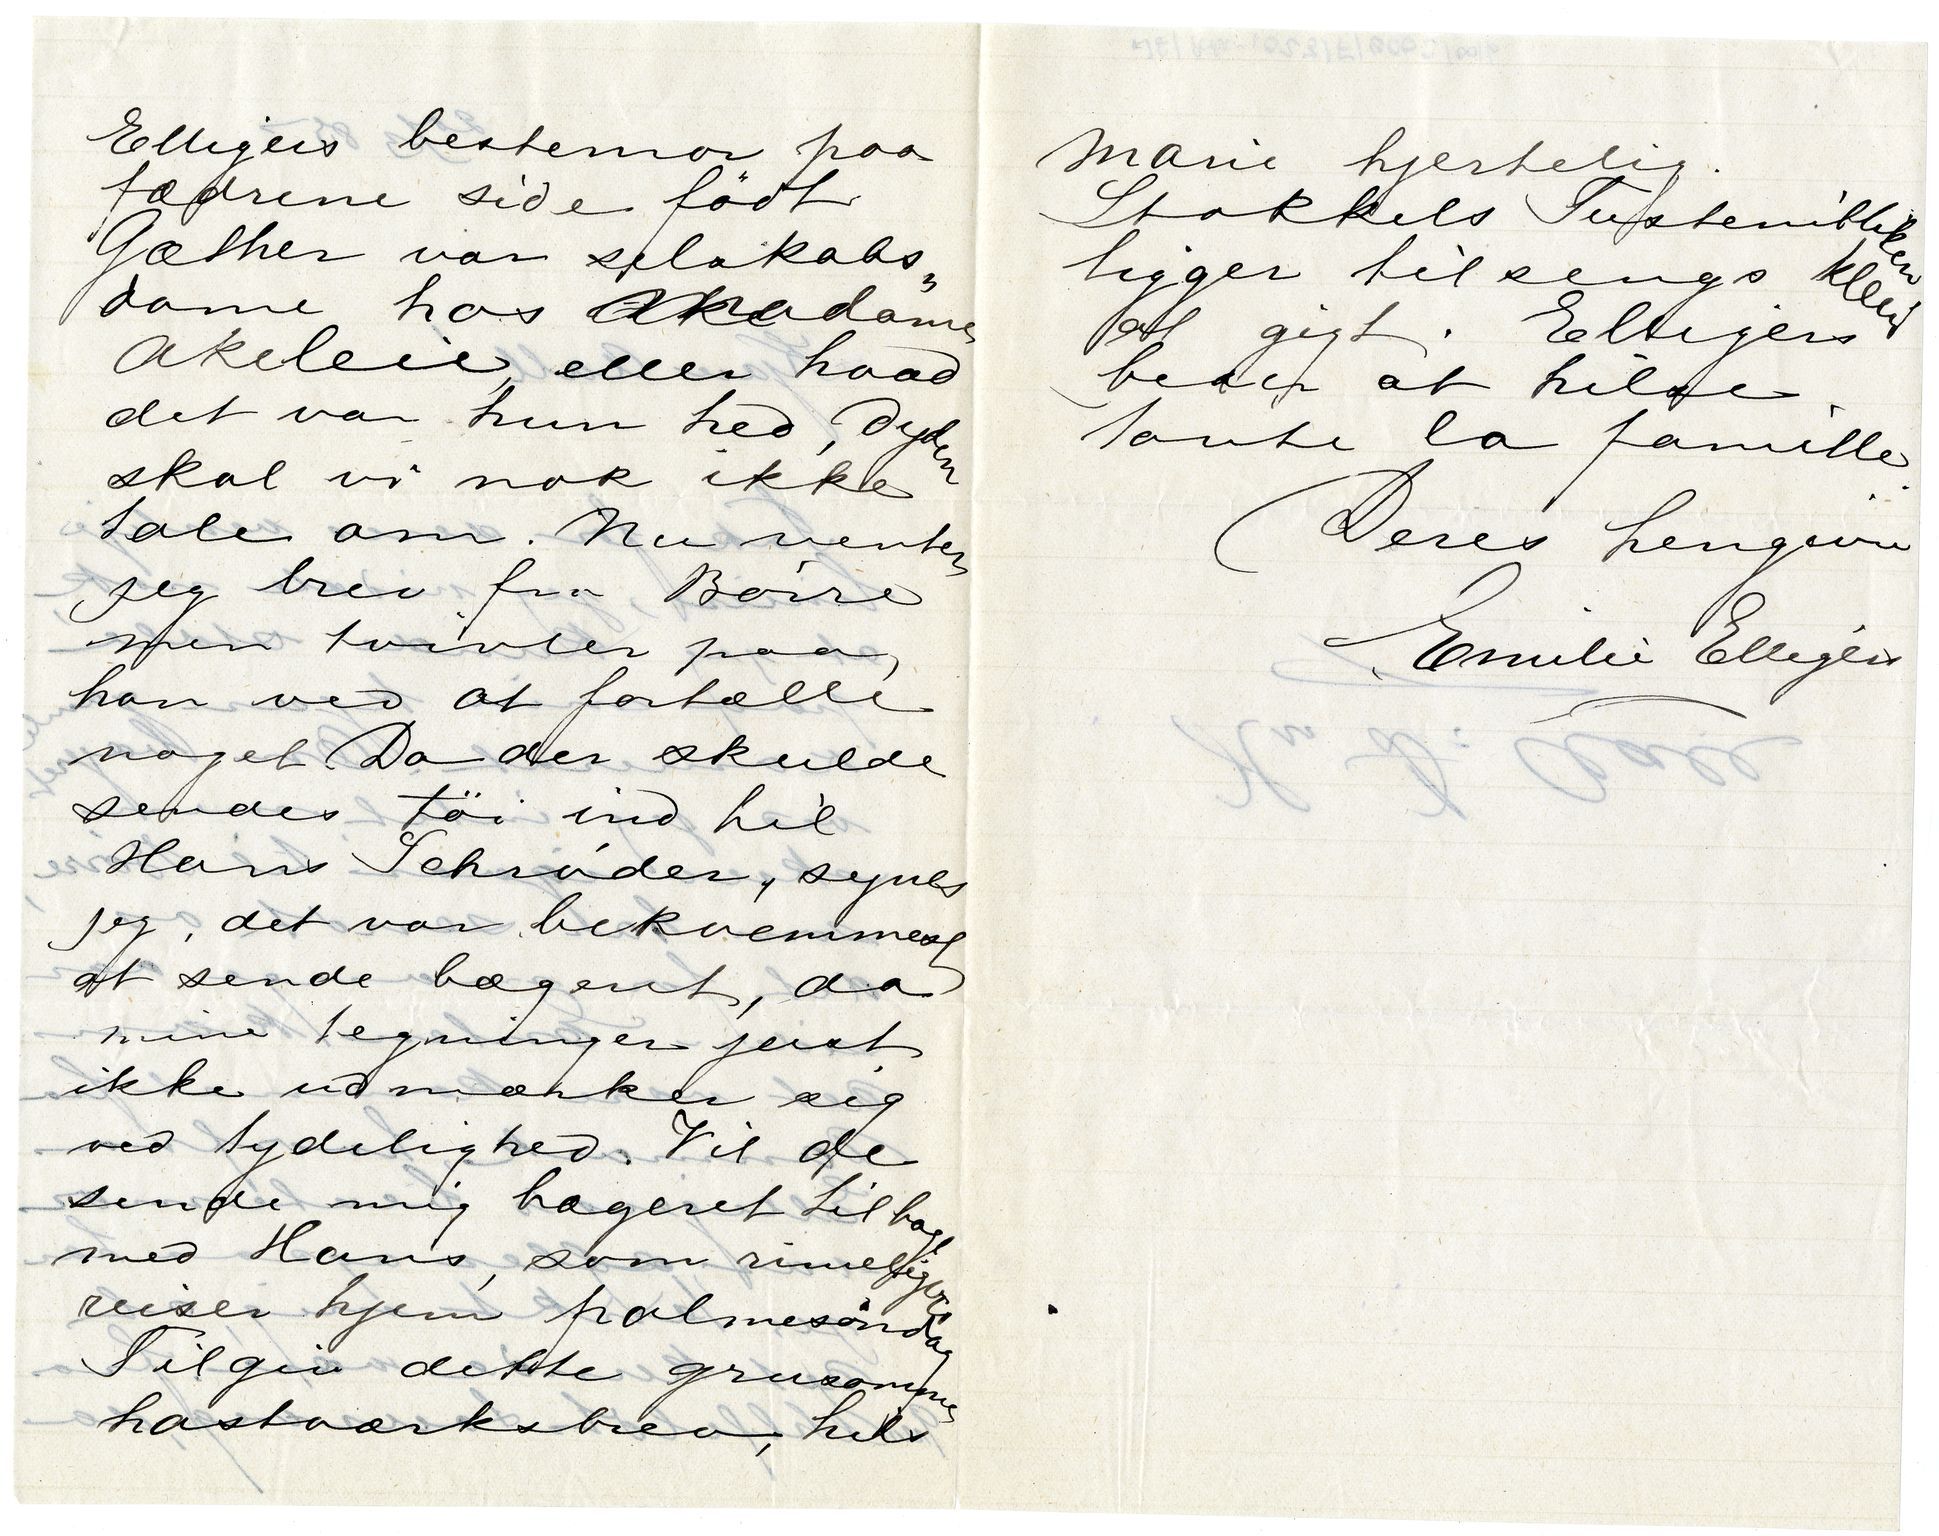 Elligers bestemor paa
fædrene side födt
Gæther var selskabs„
dame hos madame
Akeleie, eller hvad
det var hun hed, Dyden
skal vi nok ikke
tale om. Nu venter
jeg brev fra Börre
men tvivler paa,
han ved at fortælle
noget. Da der skulde
sendes töi ind til
Hans Schröder, synes
jeg, det var bekvemmest
at sende bægeret, da
mine tegninger just
ikke udmærker sig
ved tydelighed. Vil de
sende mig bægeret tilbage
med Hans, som rimeligvis
reiser hjem palmesöndag
Tilgiv dette grusomme
hastværksbrev, hils
Marie hjertelig.
Stokkels
ligger tilsengs
af gigt. Elligers
beder at hilse
tante la famille.
Deres hengivne
Emilie Elligers